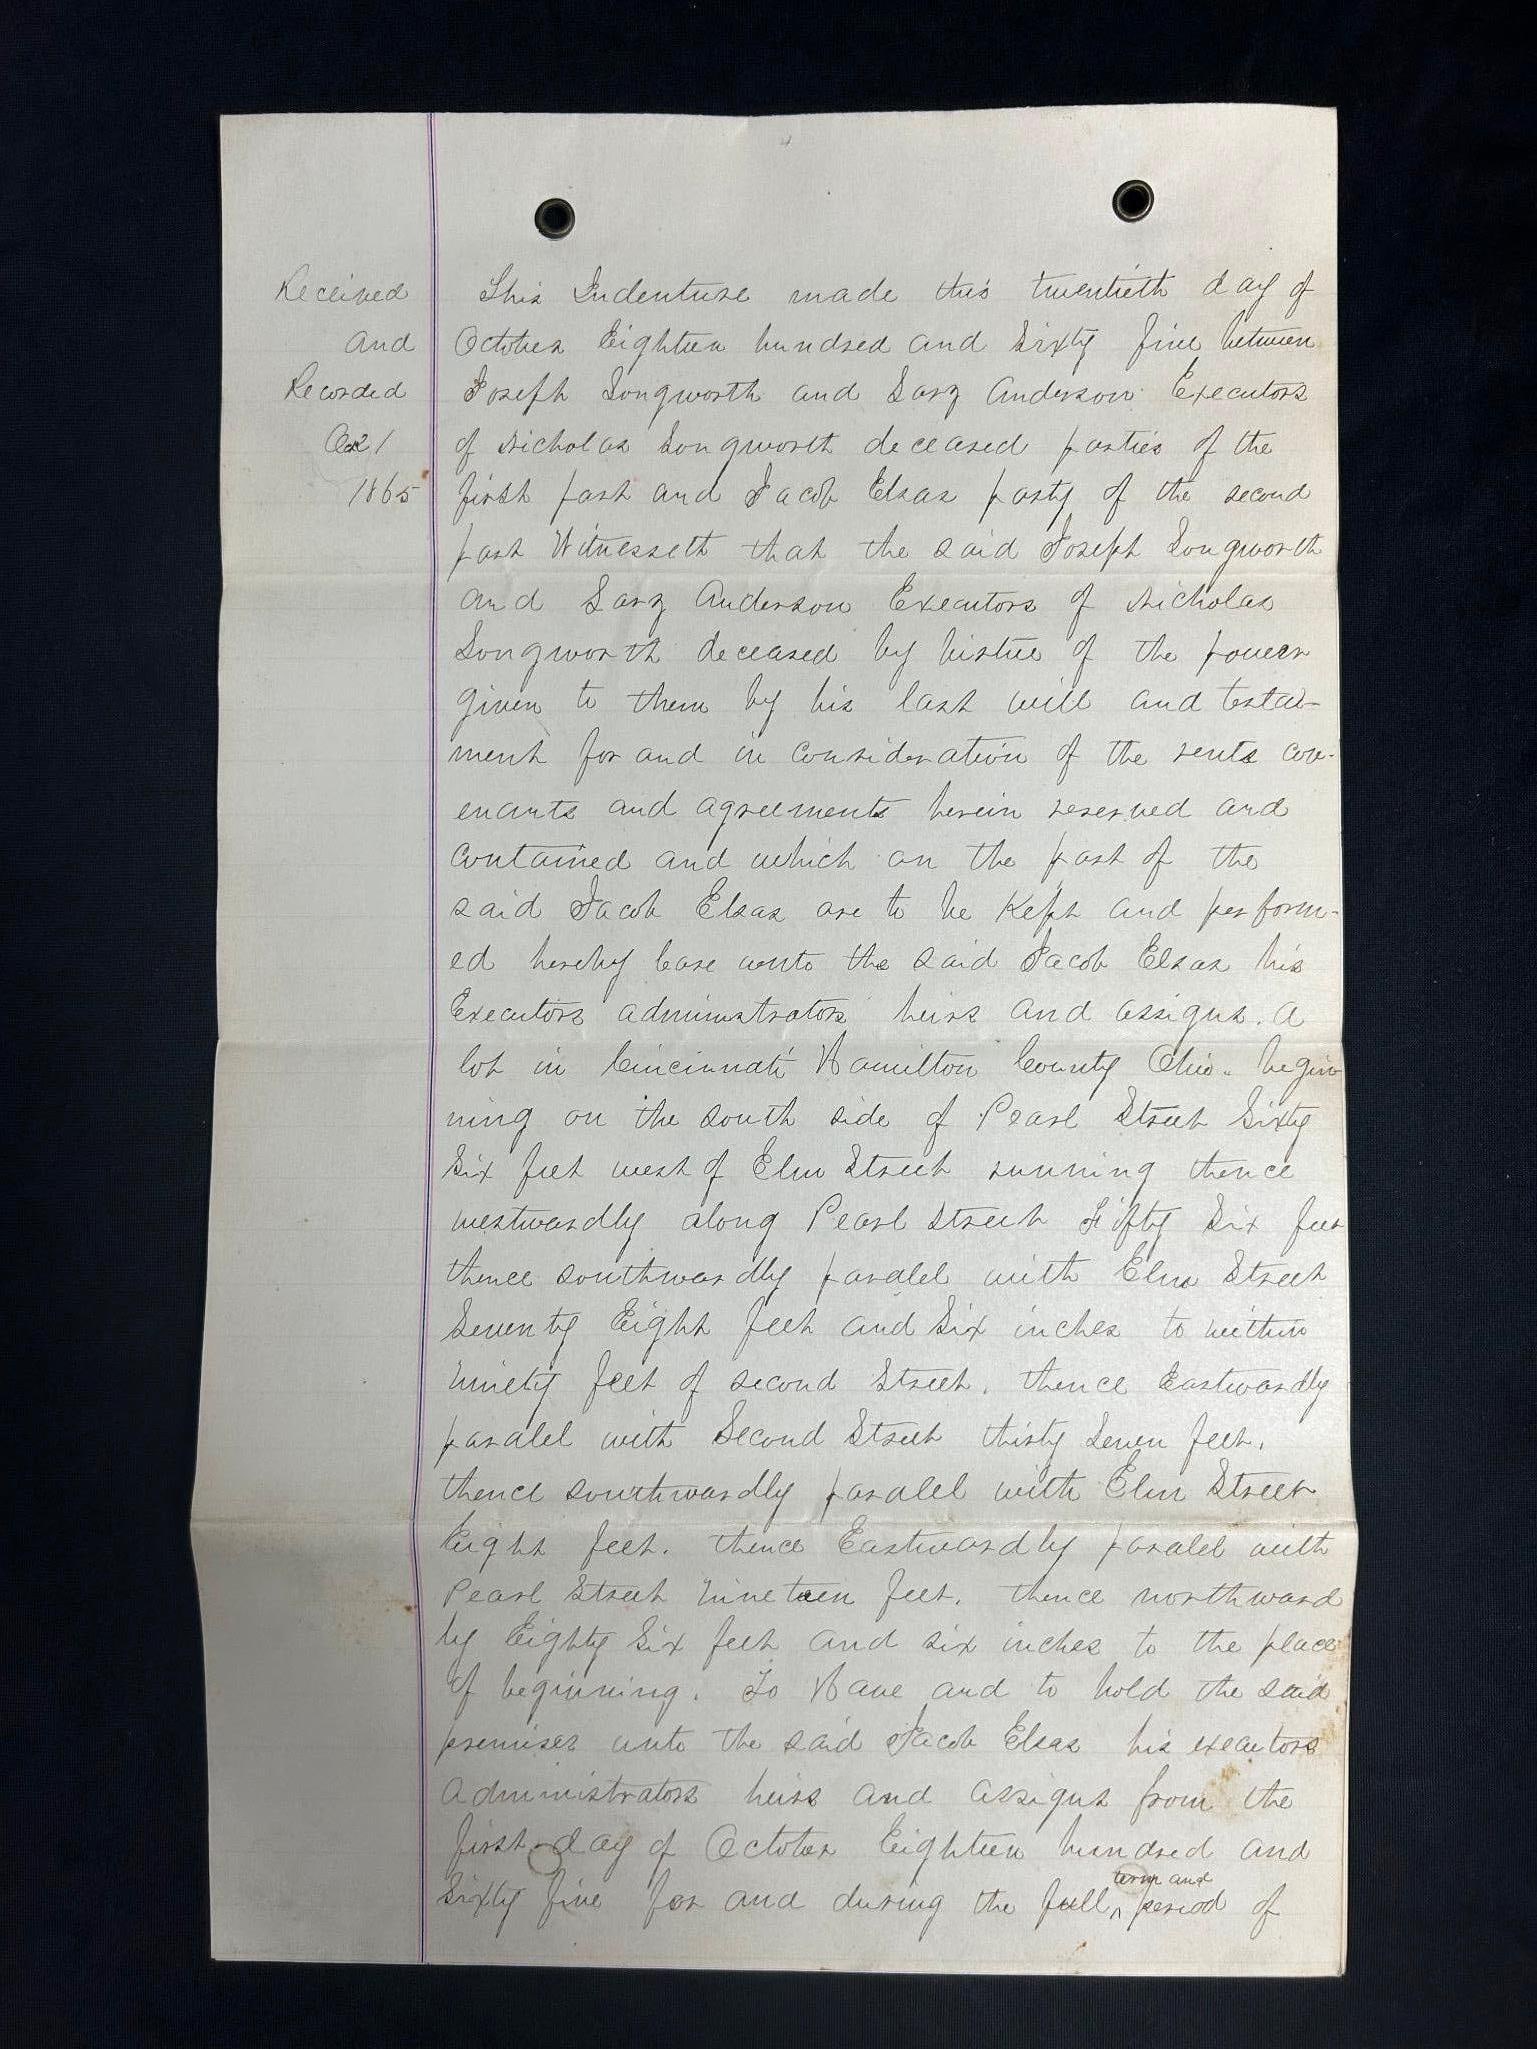 Received
and
Recorded
Oct 21
1865
This Indenture made this twentieth day of
October Eighteen hundred and Sixty five between
Joseph Longworth and Larz Anderson Executors
of Nicholas Longworth deceased parties of the
first part and Jacob Elsas party of the second
part Witnesseth that the said Joseph Longworth
and Larz Anderson Executors of Nicholas
Longworth deceased by virtue of the power
given to them by his last will and testa-
ment for and in consideration of the rents cov-
enants and agreements herein reserved and
contained and which on the part of the
said Jacob Elsas are to be Kept and perform-
ed hereby lease unto the said Jacob Elsas his
Executors administrators heirs and assigns. A
lot in Cincinnati Hamilton County Ohio. begin
ning on the south side of Pearl Street Sixty
Six feet west of Elm Street running thence
westwardly along Pearl Street Fifty Six feet
thence southwardly paralel with Elm Street
Seventy Eight feet and Six inches to within
ninety feet of second Street. thence Eastwardly
paralel with Second Street thirty Seven feet.
thence southwardly paralel with Elm Street
Eight feet. thence Eastwardly paralel with
Pearl Street nineteen feet. thence northward
ly Eighty Six feet and six inches to the place
of beginning. To Have and to hold the said
premises unto the said Jacob Elsas his executors
administrators heirs and assigns from the
first day of October Eighteen hundred and
term and
Sixty five for and during the full ^ period of